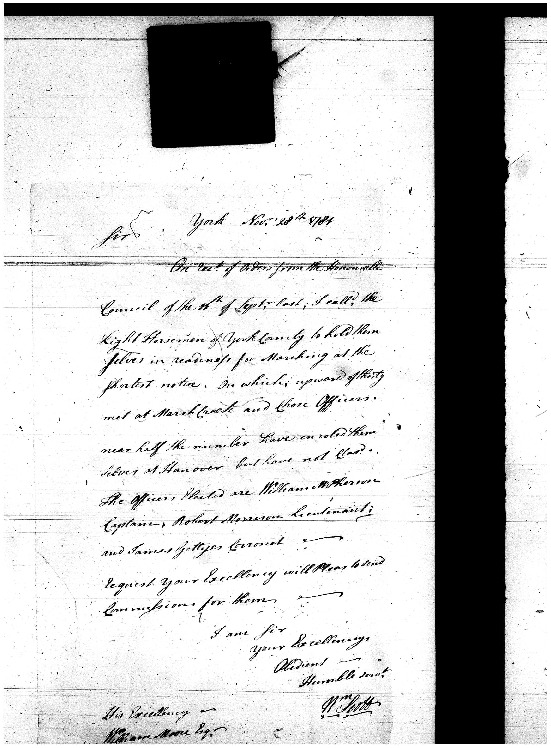 York Novr. 28th 1781
Sir
On recet. of orders from the Honourable
Council of the 11th of Septr. last, I called the
Light Horsemen of York County to hold them
selves in readiness for Marching at the
shortest notice. On which; upward of thirty
met at Marsh Creek and Chose Officers.
near half the number have enroled them
selves at Hanover but have not Chose.
The Officers Elected are William McPherson
Captain, Robert Morrison Lieutenant;
and James Gettyes Coronet
request Your Excellency will Pleas to send
Commissions for them
I am Sir
Your Excellencys
Obedient
Humble servt.
Wm Scott
His Excellency
William Moore Esqr.